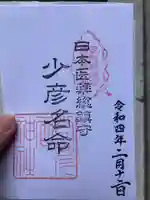 令和四年二月十二日
日本医薬総鎮守
少彦名命